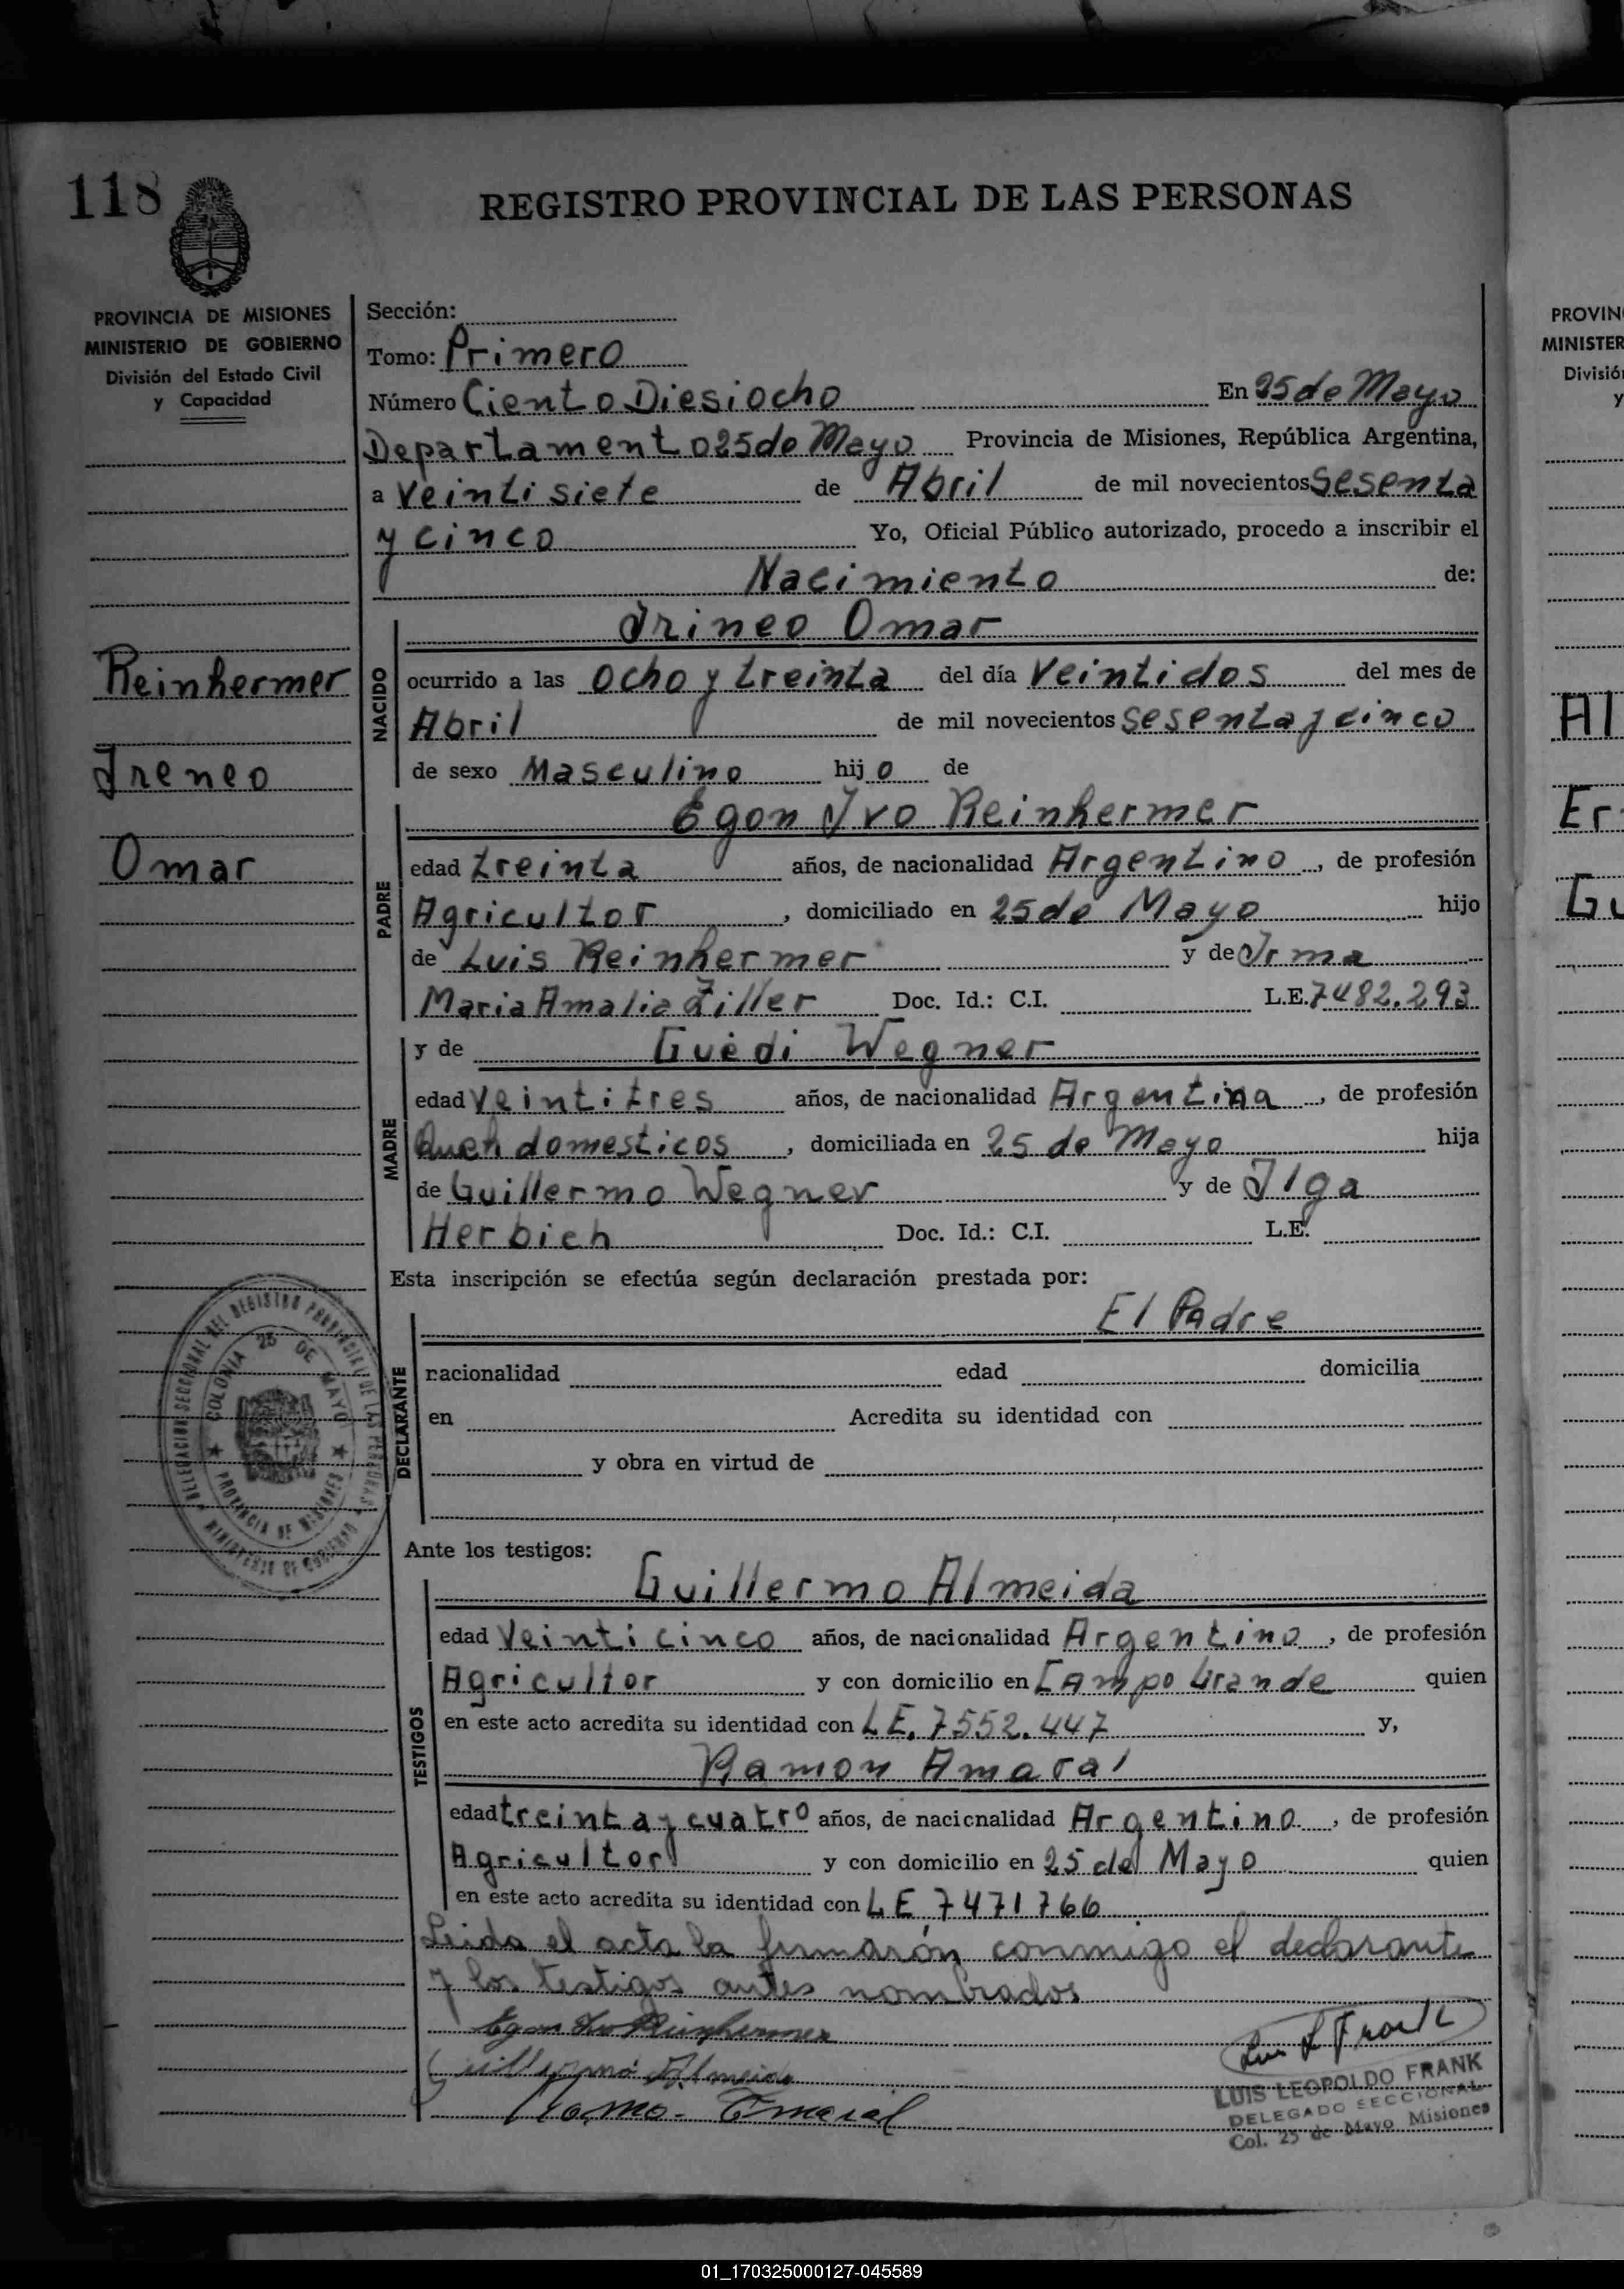 118
REGISTRO PROVINCIAL DE LAS PERSONAS
PROVINCIA DE MISIONES
MINISTERIO DE GOBIERNO
División del Estado Civil
y Capacidad
Reinhermer
Ireneo
Omar
Sección:
Tomo: Primero
Número Ciento Diesiocho En 25 de Mayo
Departamento 25 de Mayo Provincia de Misiones, República Argentina,
a veintisiete de Abril de mil novecientos sesenta
y cinco Yo, Oficial Público autorizado, procedo a inscribir el
Nacimiento de:
NACIDO
Irineo Omar
ocurrido a las ocho y treinta del día veintidos del mes de
Abril de mil novecientos sesenta y cinco
de sexo Masculino hijo de
PADRE
Egon Ivo Reinhermer
edad treinta años, de nacionalidad Argentino, de profesión
Agricultor, domiciliado en 25 de Mayo hijo
de Luis Reinhermer y de Irma
Maria Amalia Ziller Doc. Id.: C.I. L.E. 7482.293
MADRE
y de Guedi Wegner
edad veintitres años, de nacionalidad Argentina, de profesión
domesticos, domiciliada en 25 de Mayo hija
de Guillermo Wegner y de Ilga
Herbich Doc. Id.: C.I. L.E.
Esta inscripción se efectúa según declaración prestada por:
DECLARANTE
El Padre
nacionalidad edad domicilia
en Acredita su identidad con
y obra en virtud de
DELEGACION SECCIONAL DEL REGISTRO PROVINCIAL DE LAS PERSONAS
MINISTERIO DE GOBIERNO
COLONIA 25 DE MAYO
PROVINCIA DE MISIONES
Ante los testigos:
TESTIGOS
Guillermo Almeida
edad veinticinco años, de nacionalidad Argentino, de profesión
Agricultor y con domicilio en Campo Grande quien
en este acto acredita su identidad con LE. 7552.447 y,
Ramon Amaral
edad treinta y cuatro años, de nacionalidad Argentino, de profesión
Agricultor y con domicilio en 25 de Mayo quien
en este acto acredita su identidad con LE 7471766
Leida el acta la firmarón conmigo el declarante
y los testigos antes nombrados
Egon Ivo Reinhermer
Guillermo Almeida
Ramo- Emaral
Luis L Frank
LUIS LEOPOLDO FRANK
DELEGADO SECCIONAL
Col. 25 de Mayo Misiones
PROVIN
MINISTER
Divisió
y
Al
Er
Gu
01_170325000127-045589